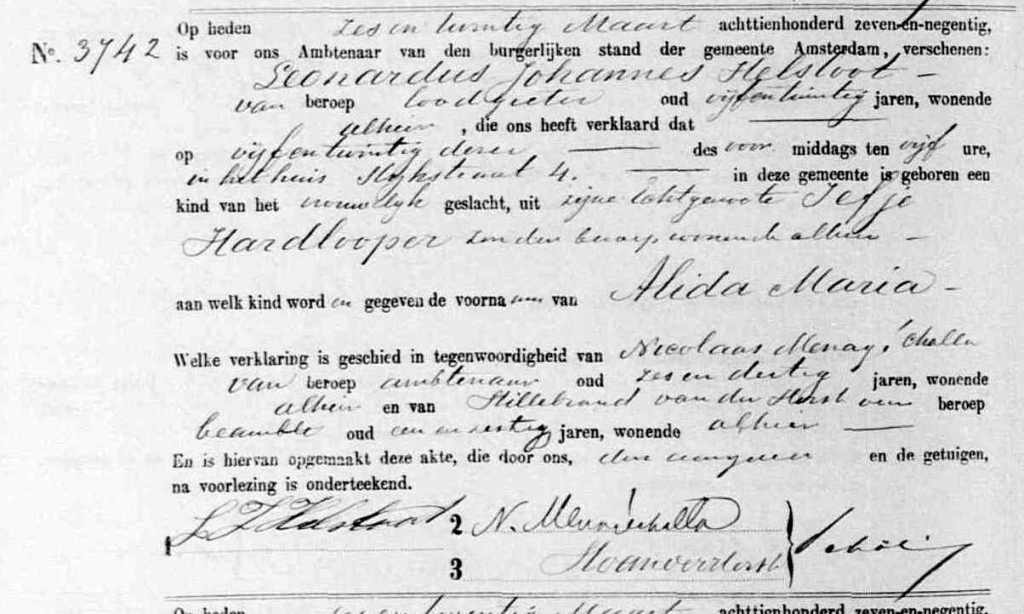 Op heden zes en twintig Maart achttienhonderd zeven-en-negentig,
No. 3742 is voor ons Ambtenaar van den burgerlijken stand der gemeente Amsterdam, verschenen:
Leonardus Johannes Helsloot
van beroep loodgieter oud vijfentwintig jaren, wonende
alhier, die ons heeft verklaard dat
op vijfentwintig dezer des voor middags ten vijf ure,
in het huis Slijkstraat 4. in deze gemeente is geboren een
kind van het vrouwelijk geslacht, uit zijne Echtgenoote Jefje
Hardlooper zonder beroep wonende alhier
aan welk kind word en gegeven de voorna men van Alida Maria
Welke verklaring is geschied in tegenwoordigheid van Nicolaas
van beroep ambtenaar oud zes en dertig jaren, wonende
alhier en van Hillebrand van der Horst van beroep
beambte oud een en zestig jaren, wonende alhier
En is hiervan opgemaakt deze akte, die door ons, den aangever en de getuigen,
na voorlezing is onderteekend.
1 L J Helsloot 2 N.
3 Hvanderhorst
Op heden zes en twintig Maart achttienhonderd zeven-en-negentig,